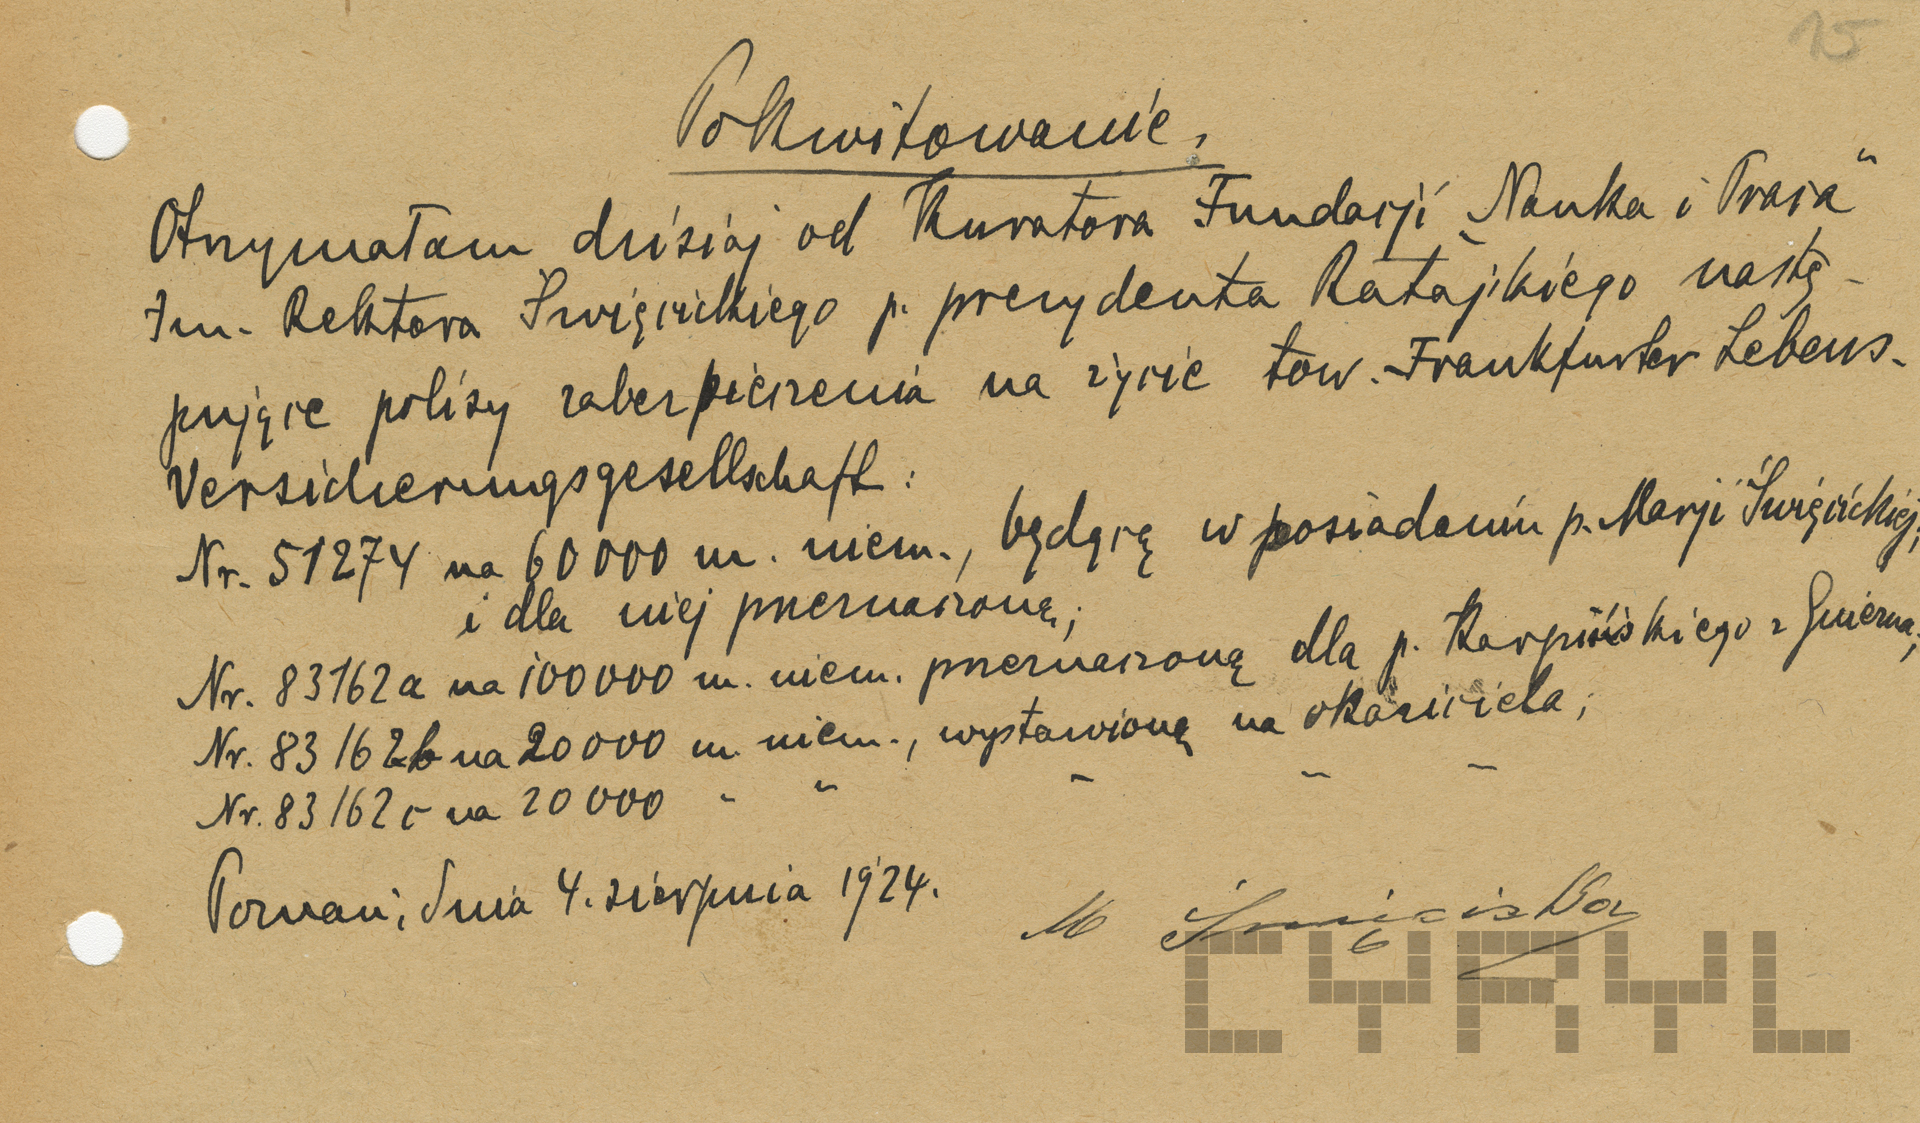 15
Pokwitowanie.
Otrzymałam dzisiaj od Kuratora Fundacji „Nauka i Praca"
Im. Rektora Święcickiego p. prezydenta Ratajskiego nastę-
pujące polisy zabezpieczenia na życie tow. Frankfurter Lebens-
Versicherungsgesellschaft:
Nr. 51274 na 60000 m. niem., będącą w posiadaniu p. Marji Święcickiej,
i dla niej przeznaczoną;
Nr. 83162a na 100000 m. niem. przeznaczoną dla p. Karpińskiego z Gniezna;
Nr. 83162b na 20000 m. niem., wystawioną na okaziciela;
Nr. 83162c na 20000 " " " " "
Poznań, dnia 4. sierpnia 1924.
M Święcicka
CYRYL